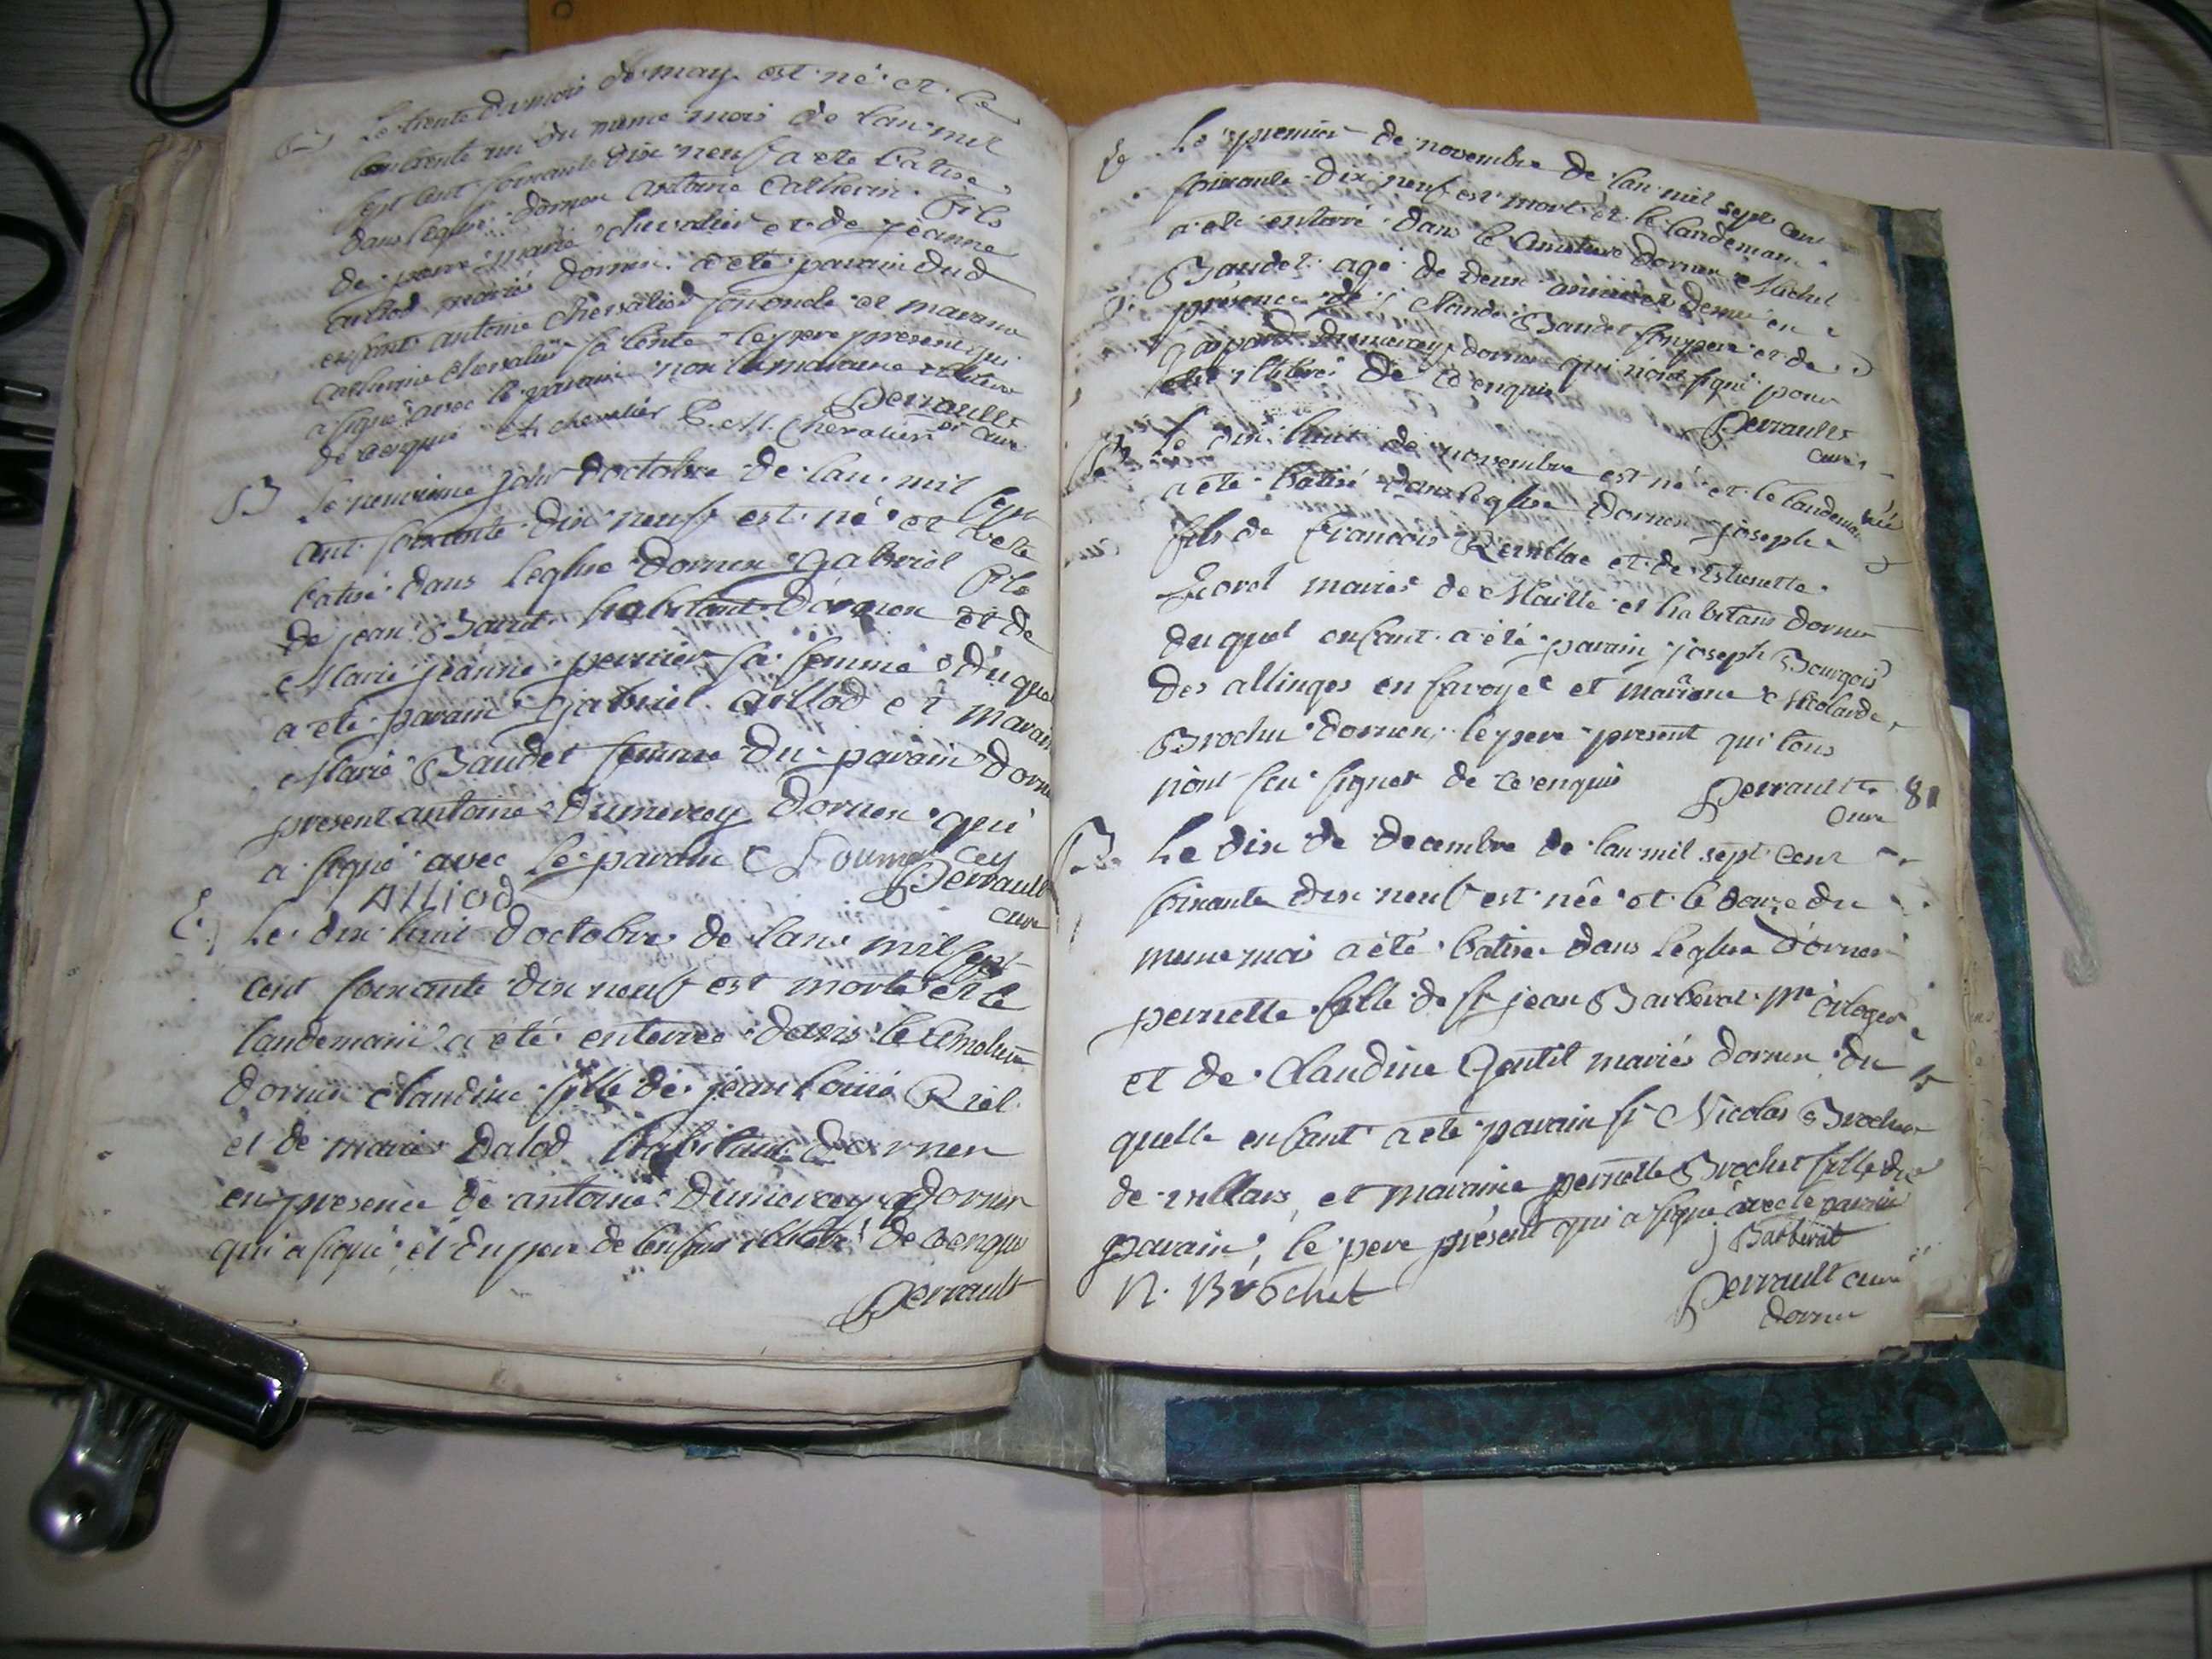 B Le trente du mois de may est né et le
trente un du meme mois de lan mil
sept cent soixante dix neuf a ete batisé
dans leglise dornex antoine Catherin fils
de pierre marie chevalier et de jeanne
aillod mariés dornex a été parain dud
enfant antoine chevalier son oncle et maraine
catherine chevalier sa tente le pere present qui
a signé avec le parain non la maraine illitere
de ce enquis A chevalier P. M. Chevalier Perrault
curé
B Le neuvieme jour doctobre de lan mil sept
cent soixante dix neuf est né et a ete
batisé dans leglise dornex Gabriel fils
de jean Baut habitant dornex et de
Marie jeanne perrier sa femme duquel
a été parain Gabriel aillod et marain
Marie Baudet femme du parain dornex
present antoine Dumercey dornex qui
a signé avec le parain A Doumercey
Alliod Perrault
curé
E. Le dix huit doctobre de lan mil sept
cent soixante dix neuf est morte et le
landemain a été enterrée dans le cimetiere
dornex claudine fille de jean Louis Riel
et de marie Dalod habitant dornex
en presence de antoine Dumercey dornex
qui a signé et du pere de lenfant illitéré de ce enquis
Perrault
E Le premier de novembre de lan mil sept cent
soixante dix neuf est mort et le landemain
a été enterré dans le cimetiere dornex Michel
Baudet agé de deux année et demie en
présence de Claude Baudet son pere et de
gaspard dumercey dornex qui n'ont signé pour
etre illitérés de ce enquis
Perrault
curé
B Le dix huit de novembre est né et le landemain
a été batisé dans leglise dornex joseph
fils de francois Remillae et de Estienette
Lorol mariés de Maille et habitans dornex
du quel enfant a été parain joseph Bourgois
des allinges en savoye et maraine Nicolarde
Brochu dornex, le pere present qui tous
nont seu signer de ce enquis Perrault
curé
81
B. Le dix de decembre de lan mil sept cent
soixante dix neuf est née et le douze du
meme mois a été batisée dans leglise d'ornex
pernette fille de sr jean Barberat me orloger
et de Claudine Gentil mariés dornex du
quelle enfant a eté parain sr Nicolas Brochu
de villars, et maraine pernette Brochet fille du
parain, le pere présent qui a signé avec le parain
j Barberat
N. Brochet Perrault curé
dornex